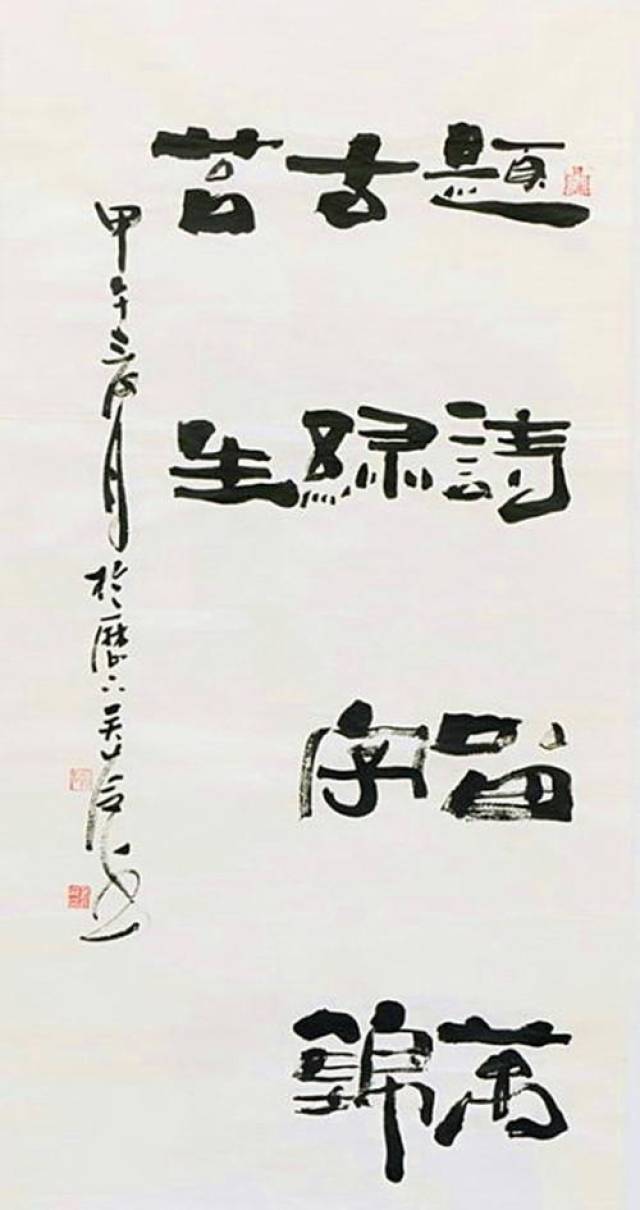 題詩留萬
古綠字錦
苔生
甲午三月於歷下